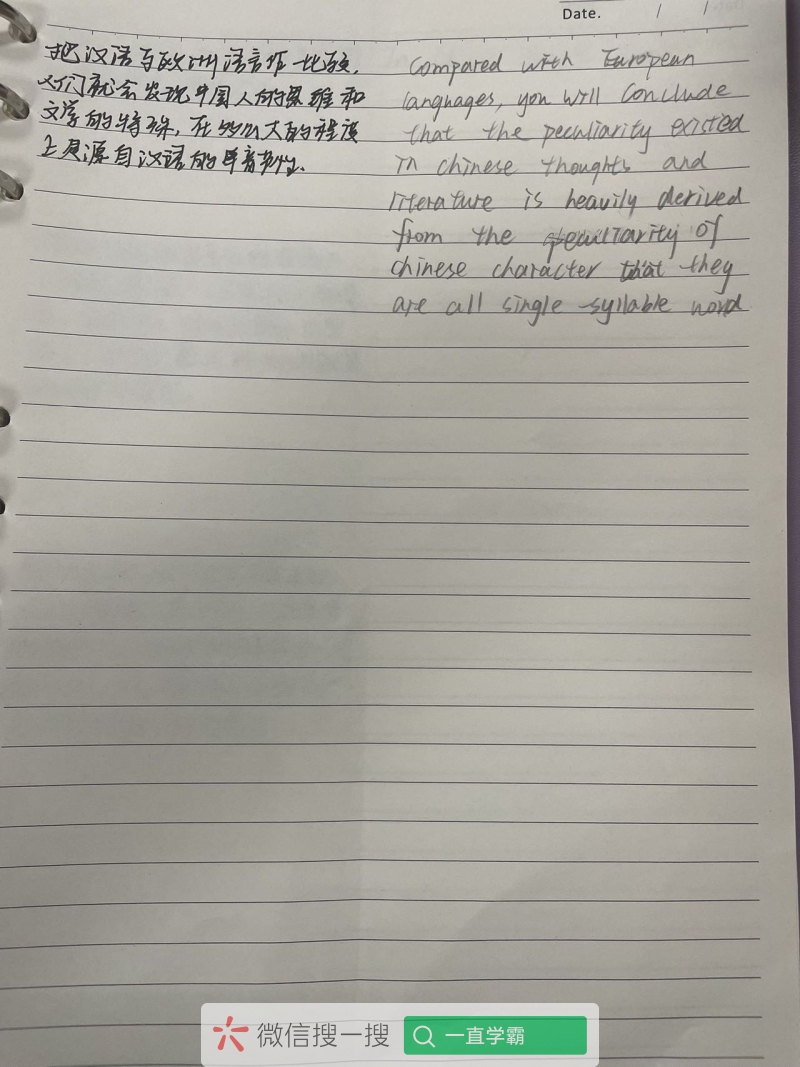 Date. / /
把汉语与欧洲语言作一比较,
人们就会发现中国人的思维和
文学的特殊,在如此大的程度
上是源自汉语的单音节性.
Compared with European
languages, you will conclude
that the peculiarity existed
in chinese thoughts and
literature is heavily derived
from the peculiarity of
chinese character that they
are all single-syllable word
微信搜一搜
一直学霸